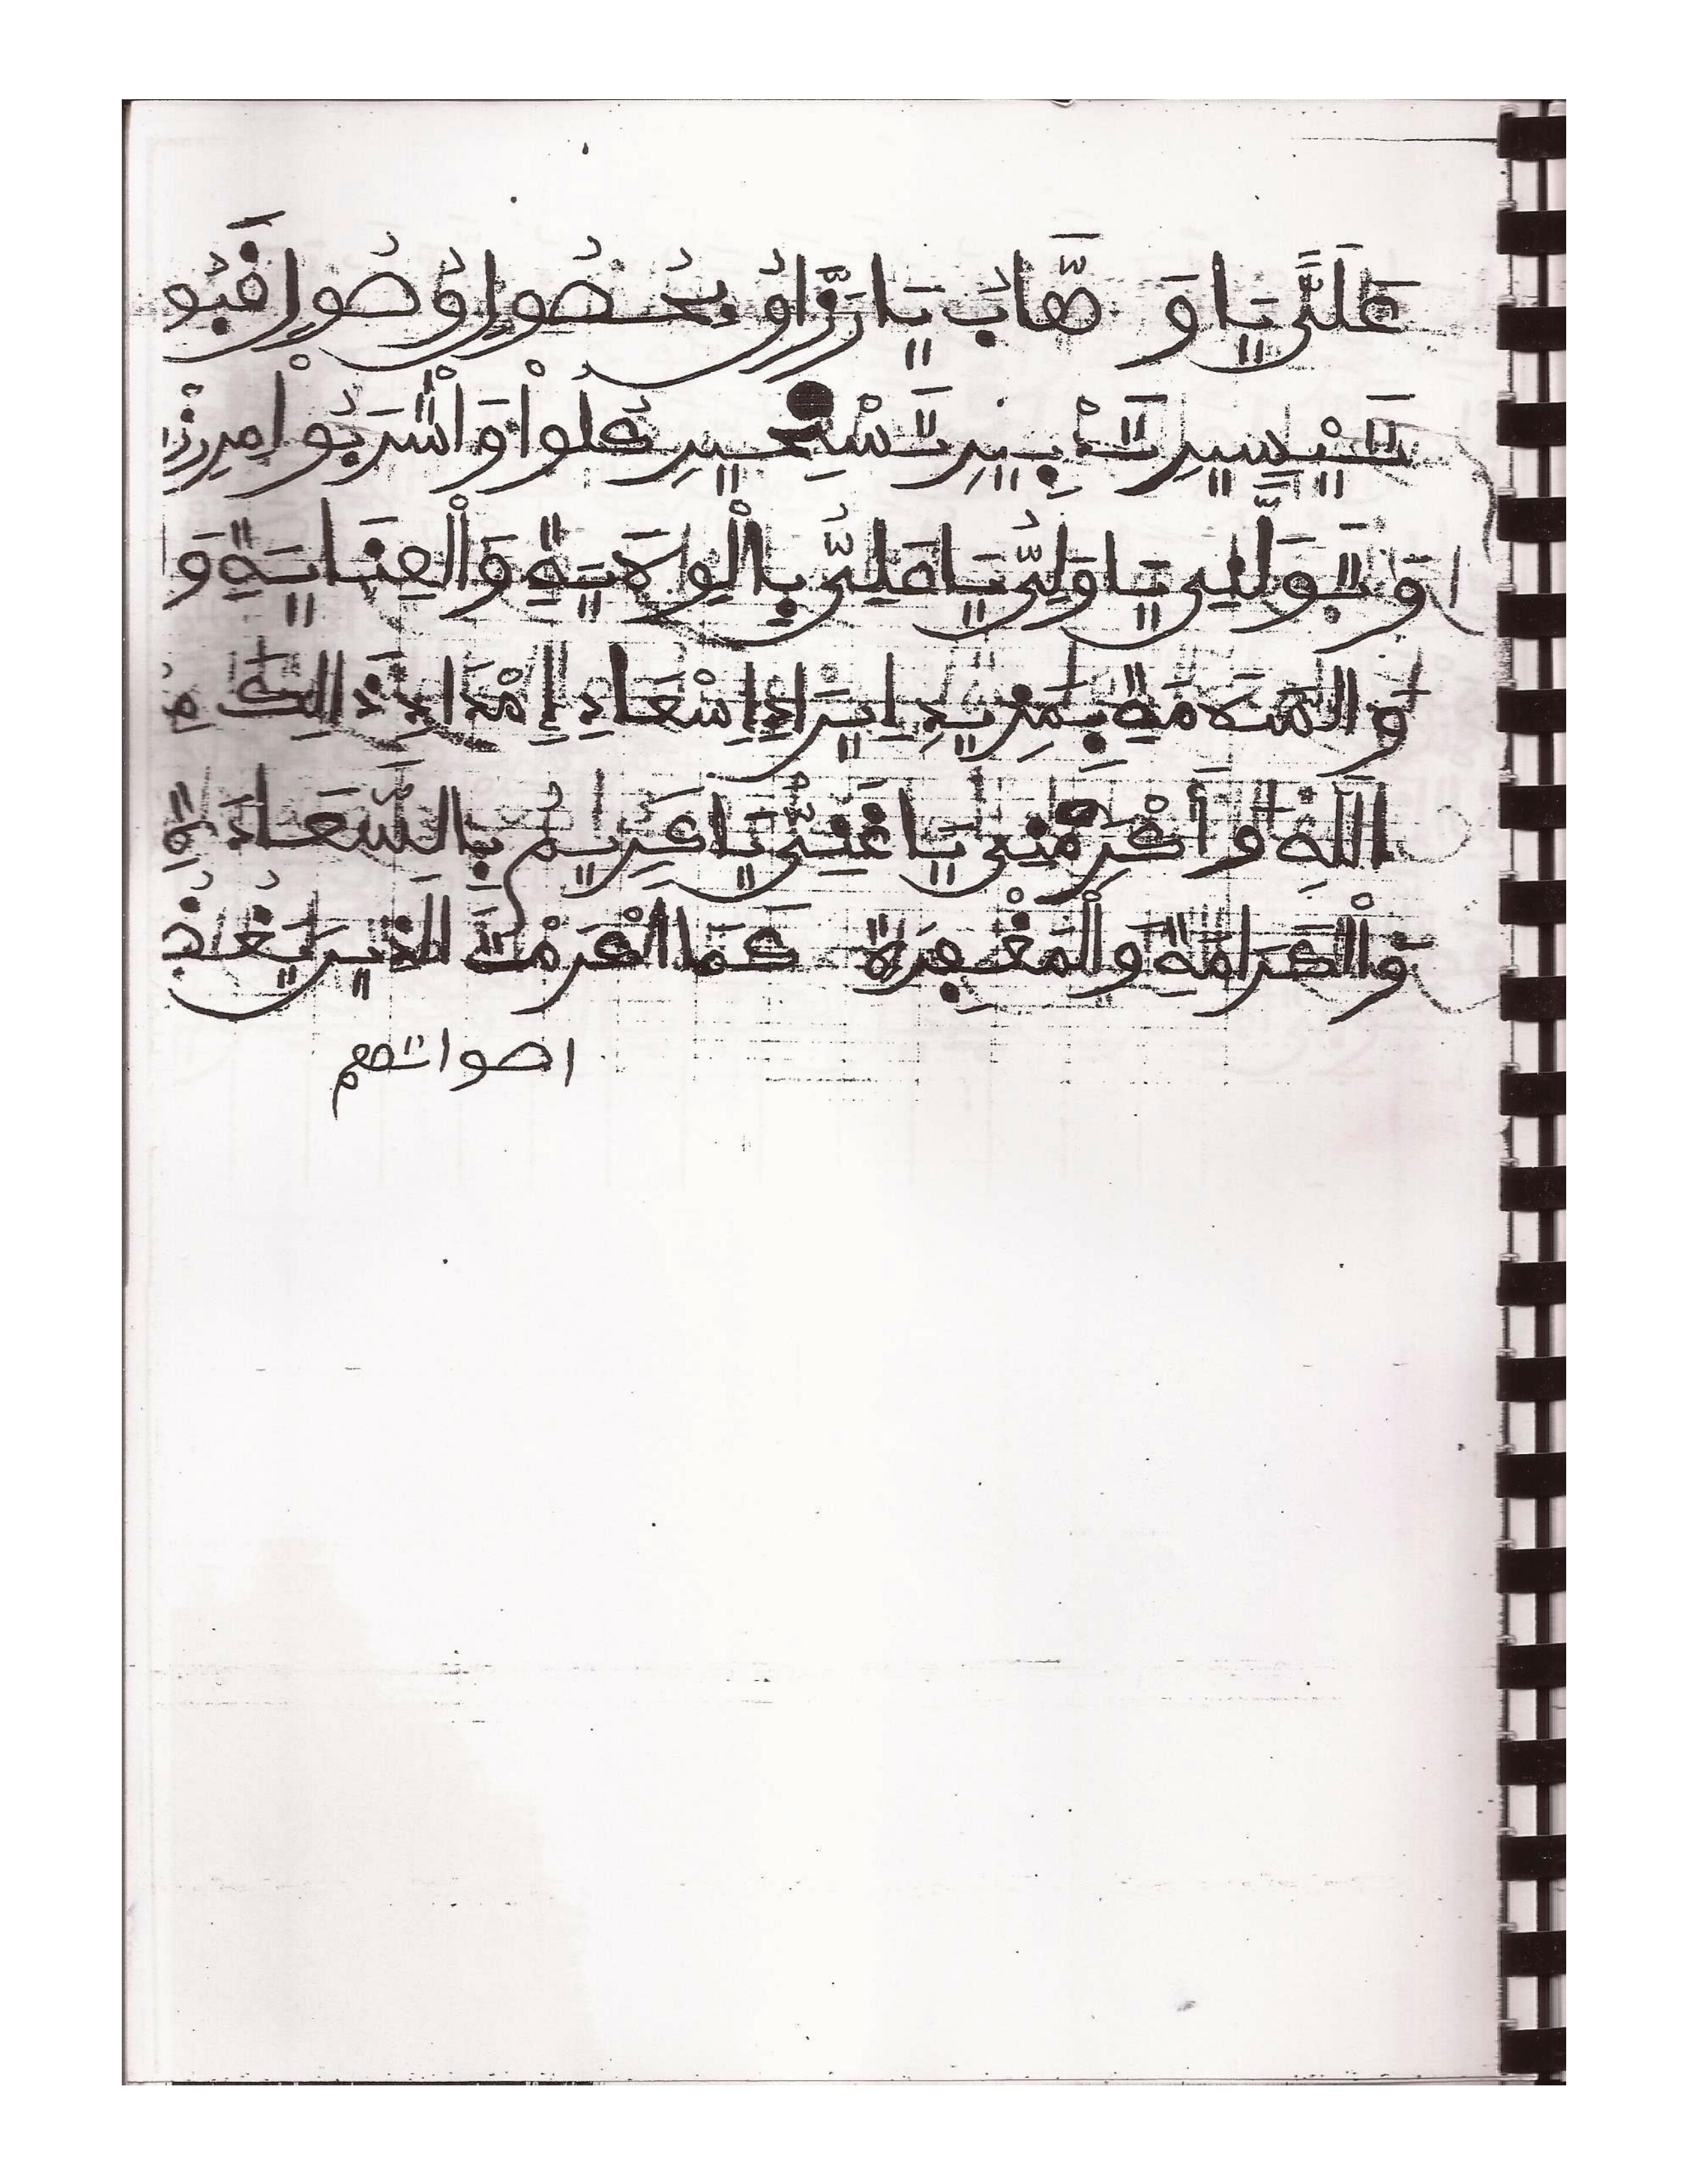 عَلَيَّ يَا وَهَّابُ يَا رَزَّاقُ بِحُصُولِ وُصُولِ قَبُو
تَيْسِيرِ تَدْبِيرِ تَسْخِيرِ كُلُوا وَاشْرَبُوا مِن رِّزْ
وَتَوَلَّنِي يَا وَلِيُّ يَا عَلِيُّ بِالْوِلَايَةِ وَالْعِنَايَةِ وَ
وَالسَّلَامَةِ بِمَزِيدِ إِيرَادِ إِسْعَادِ إِمْدَادِ ذَالِكَ مِ
اللهِ وَأَكْرِمْنِي يَا غَنِيُّ يَا كَرِيمُ بِالسَّعَادَةِ
وَالْكَرَامَةِ وَالْمَغْفِرَةِ كَمَا أَكْرَمْتَ الَّذِينَ يَغُضُّ
اصواتهم